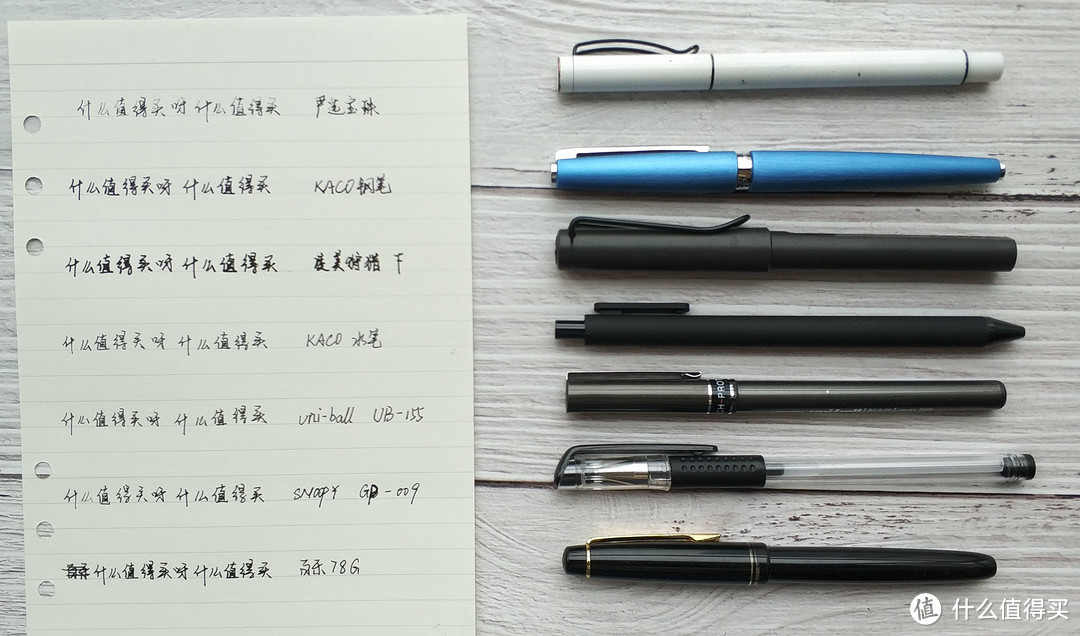 什么值得买呀 什么值得买 严选宝珠
什么值得买呀 什么值得买 KACO钢笔
什么值得买呀 什么值得买 美狩猎 F
什么值得买呀 什么值得买 KACO 水笔
什么值得买呀 什么值得买 uni-ball UB-155
什么值得买呀 什么值得买 SNOOPY GP-009
什么值得买呀 什么值得买 百乐78G
值 什么值得买